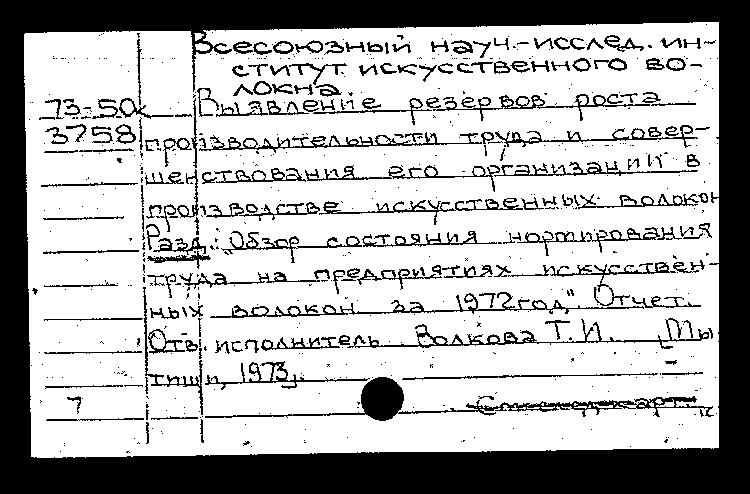 Всесоюзный науч.-исслед. ин-
ститут искусственного во-
локна.
73-50к Выявление резервов роста
3758 производительности труда и совер-
шенствования его организации в
производстве искусственных волокон
Разд.: "Обзор состояния нормирования
труда на предприятиях искусствен-
ных волокон за 1972год". Отчет.
Отв. исполнитель Волкова Т.И. [Мы-
тищи, 1973].
7 См.след.карт.